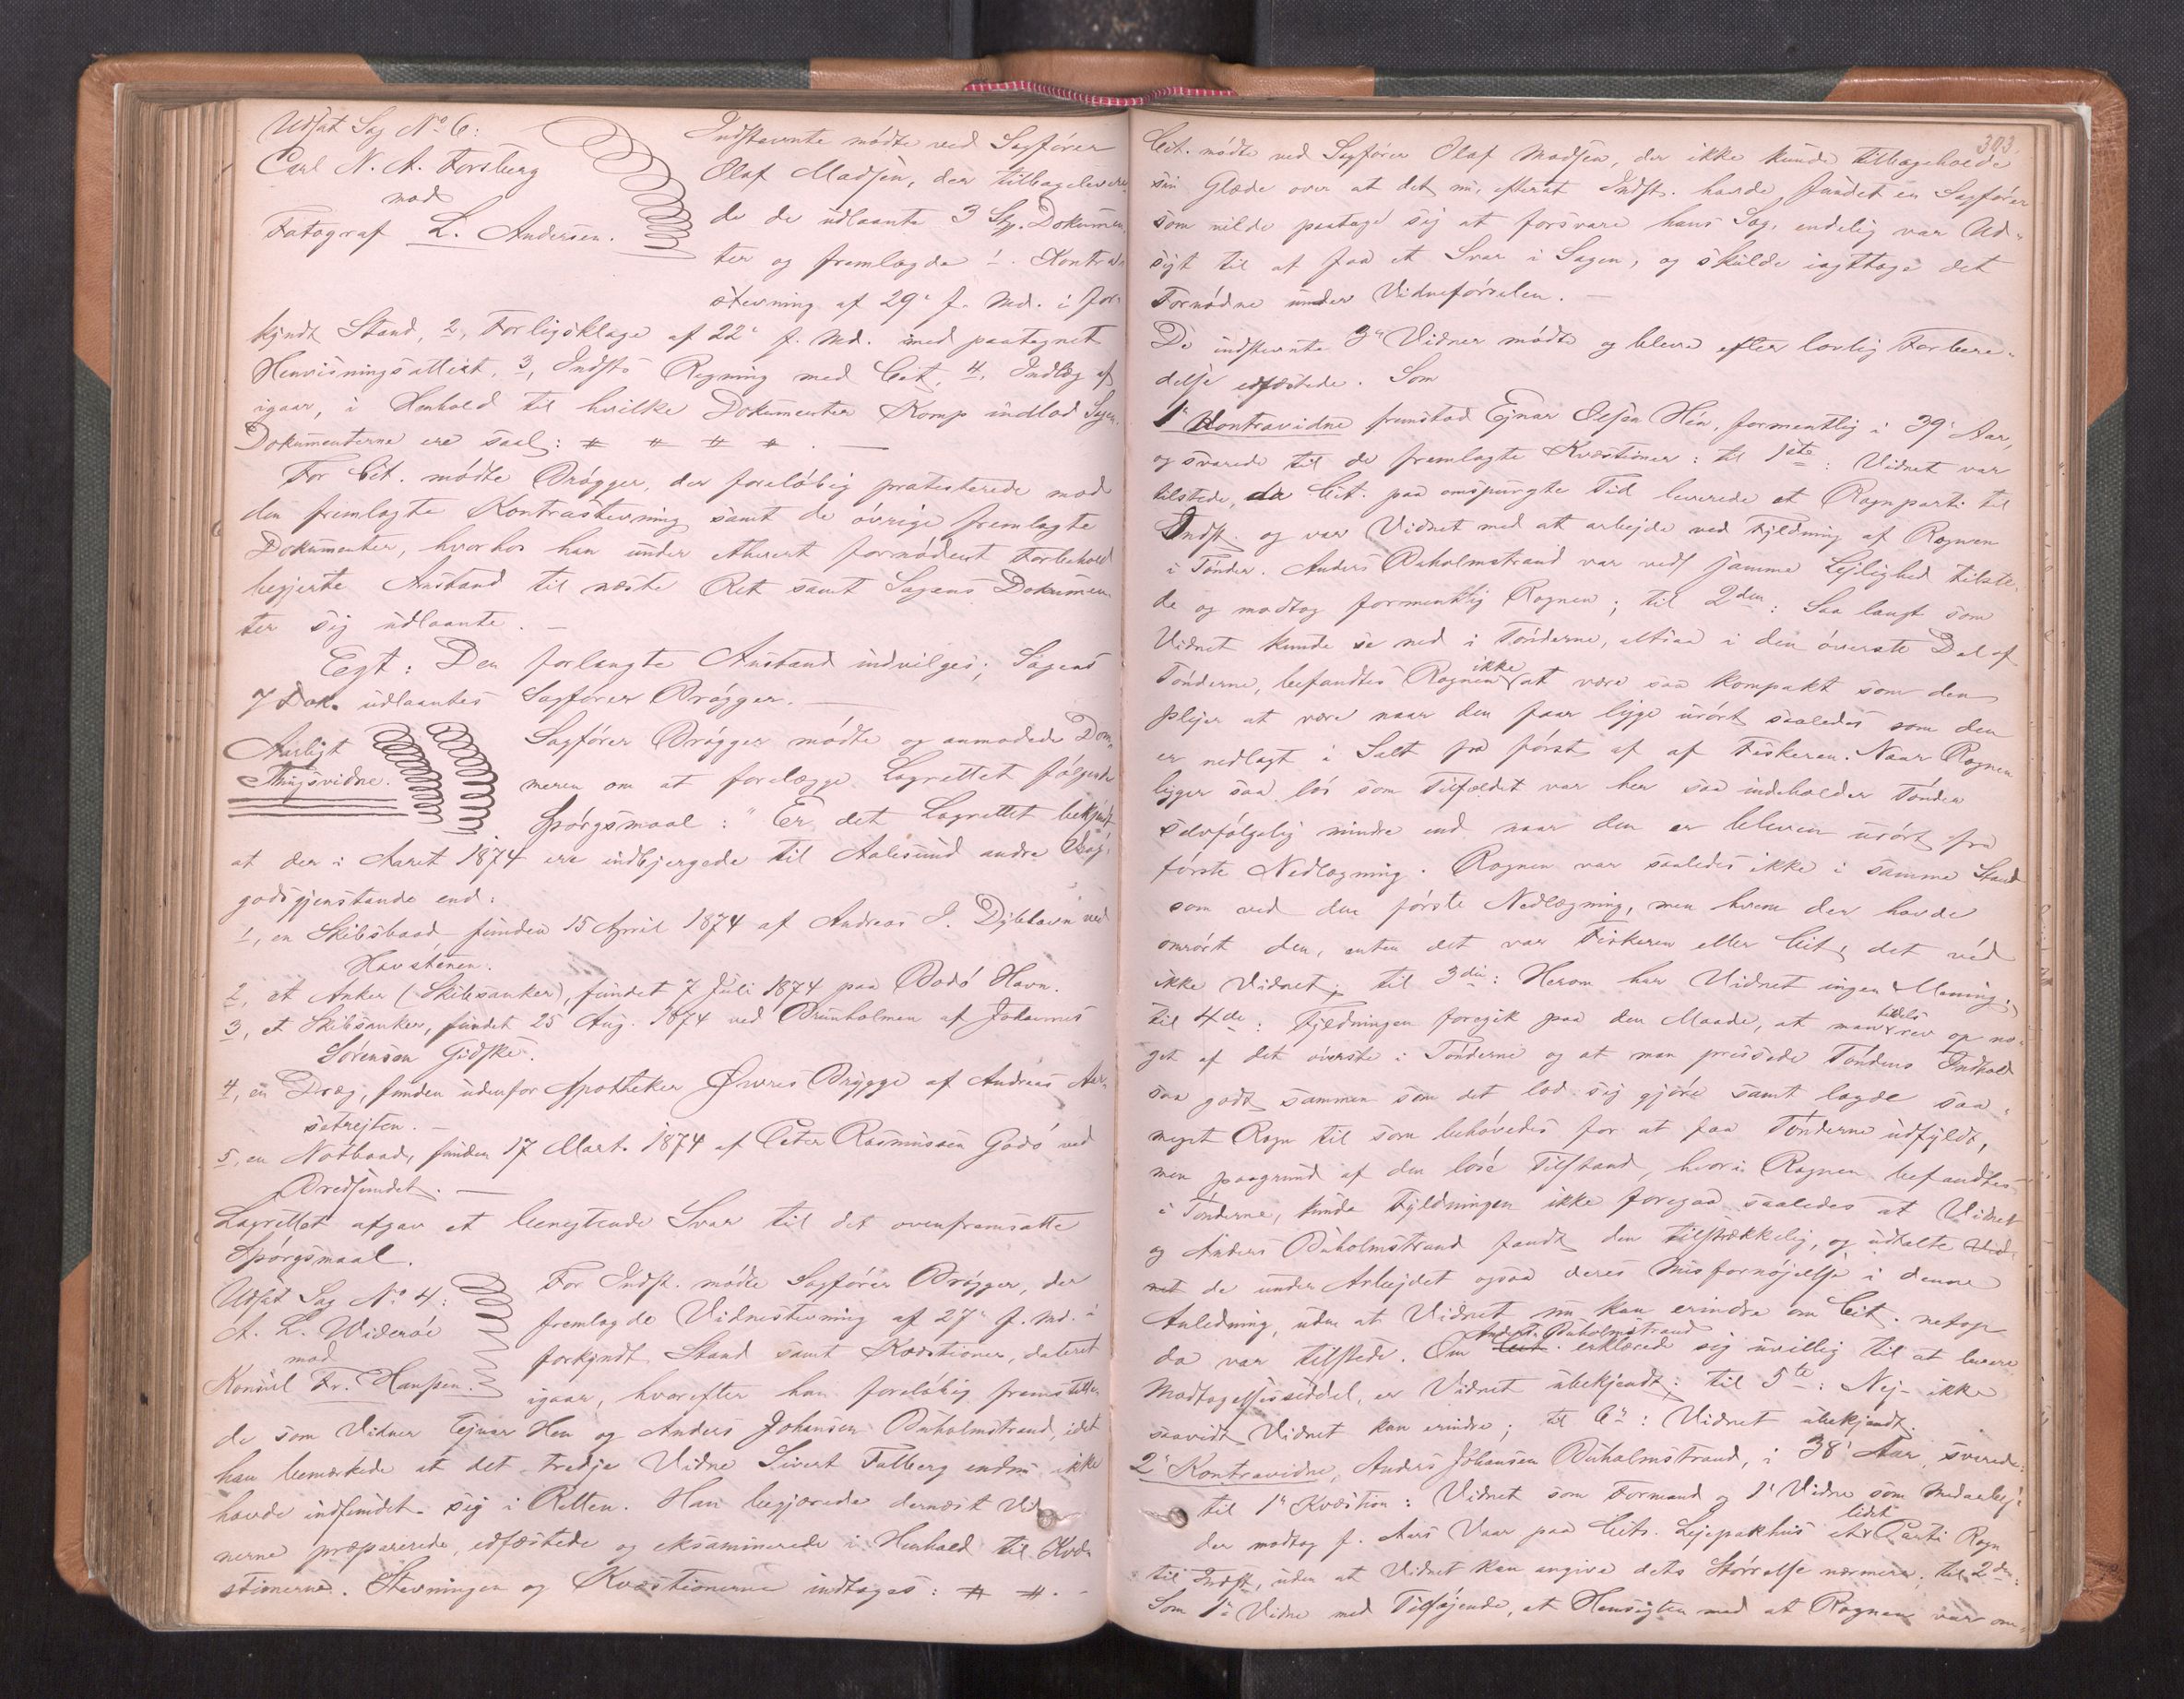 Udsat Sag No 6:
Carl N. A. Forsberg
mod
Fotograf L. Andersen.
Indstevnte mødte ved Sagfører
Olaf Madsen, der tilbagelevere,
de de udlaante 3 Sgs. Dokumen,
ter og fremlagde 1. Kontra
stevning af 29' f. Md. i for,
kyndt Stand, 2, Forligsklage af 22' f. Md. med paategnet
Henvisningsattest, 3, Indsts Regning med Cit, 4, Indlæg af
igaar, i Henhold til hvilke Dokumenter Komp indlod Sagen.
Dokumenterne ere saal: # # # #. —
For Cit. mødte Brøgger, der foreløbig protesterede mod
den fremlagte Kontrastevning samt de øvrige fremlagte
Dokumenter, hvorhos han under ethvert fornødent Forbehold
begjerte Anstand til næste Ret samt Sagens Dokumen
ter sig udlaante. —
Egt: Den forlangte Anstand indvilges; Sagens
7 Dok. udlaantes Sagfører Brøgger. —
Aarligt
Thingsvidne.
Sagfører Brøgger mødte og anmodede Dom,
meren om at forelægge Lagrettet følgende
Spørgsmaal: "Er det Lagrettet bekjendt
at der i Aaret 1874 ere indbjergede til Aalesund andre Vrag,
godsgjenstande end:
1, en Skibsbaad funden 15 April 1874 af Andreas J. Dybhavn ved
Havstenen.
2, et Anker (Skibsanker), fundet 7 Juli 1874 paa Bodø Havn.
3, et Skibsanker, fundet 25 Aug. 1874 ved Brunholmen af Johannes
Sørensen Gidske.
4, en Dræg, funden udenfor Apotheker Øwres Brygge af Andreas Aar,
setrejten. —
5, en Notbaad, funden 17 Mart. 1874 af Peter Rasmussen Godø ved
Bredsundet. —
Lagrettet afgav et benegtende Svar til det ovenfremsatte
Spørgsmaal.
Udsat Sag No 4:
A. L. Widerøe
mod
Konsul Fr. Hanssen.
For Indst. mødte Sagfører Brøgger, der
fremlagde Vidnestevning af 27' f. Md. i
forkyndt Stand samt Kvæstioner, dateret
igaar, hvorefter han foreløbig fremstille,
de som Vidner Ejnar Hen og Anders Johansen Buholmstrand, idet
han bemærkede at det tredje Vidne Sivert Fulberg endnu ikke
havde indfundet sig i Retten. Han begjærede dernæst Vid
nerne præparerede, edfæstede og eksaminerede i Henhold til Kvæ
stionerne. Stevningen og Kvæstionerne indtages: # #. -
303.
Cit. mødte ved Sagfører Olaf Madsen, der ikke kunde tilbageholde
sin Glæde over at det nu, efterat Indst. havde fundet en Sagfører
som vilde paatage sig at forsvare hans Sag, endelig var Ud-
sigt til at faa et Svar i Sagen, og skulde iagttage det
Fornødne under Vidneførselen. —
De indstevnte 3' Vidner mødte og bleve efter lovlig Forbere-
delse edfæstede. Som
1' Kontravidne fremstod Ejnar Olsen Hen, formentlig i 39' Aar,
og svarede til de fremlagte Kvæstioner: til 1ste: Vidnet var
tilstede, da Cit. paa omspurgte Tid leverede et Rognparti til
Indst. og var Vidnet med at arbejde ved Fyldning af Rognen
i Tønder. Anders Buholmstrand var ved samme Lejlighed tilste,
de og modtog formentlig Rognen; til 2den: Saa langt som
Vidnet kunde se ned i Tønderne, altsaa i den øverste Del af
Tønderne, befandtes Rognen ikke at være saa kompakt som den
plejer at være naar den faar ligge urørt saaledes som den
er nedlagt i Salt fra først af af Fiskeren. Naar Rognen
ligger saa løs som Tilfældet var her saa indeholder Tønden
selvfølgelig mindre end naar den er bleven urørt fra
første Nedlægning. Rognen var saaledes ikke i samme Stand
som ved den første Nedlægning, men hvem der havde
omrørt den, enten det var Fiskeren eller Cit, det véd
ikke Vidnet; til 3die: Herom har Vidnet ingen Mening;
til 4de: Fyldningen foregik paa den Maade, at man tildels rev op no-
get af det øverste i Tønderne og at man pressede Tøndens Indhold
saa godt sammen som det lod sig gjøre samt lagde saa,
meget Rogn til som behøvedes for at faa Tønderne udfyldt,
men paagrund af den løse Tilstand, hvori Rognen befandtes
i Tønderne, kunde Fyldningen ikke foregaa saaledes at Vidnet
og Anders Buholmstrand fandt den tilstrækkelig, og udtalte Vid-
net de under Arbejdet ogsaa deres Misfornøjelse i denne
Anledning, uden at Vidnet nu kan erindre om Cit. netop
da var tilstede. Om Cit. Anders Buholmstrand erklærede sig uvillig til at levere
Modtagelsesseddel, er Vidnet ubekjendt; til 5te: Nej – ikke
saavidt Vidnet kan erindre; til 6': Vidnet ubekjendt.
2' Kontravidne, Anders Johansen Buholmstrand, i 38' Aar, svarede:
til 1' Kvæstion: Vidnet som Formand og 1' Vidne som Medarbej,
der modtog f. Aars Vaar paa Cits. Lejepakhus et lidet Parti Rogn
til Indst, uden at Vidnet kan angive dets Størrelse nærmere; til 2den:
Som 1' Vidne med Tilføjende, at Hensigten med at Rognen var om,